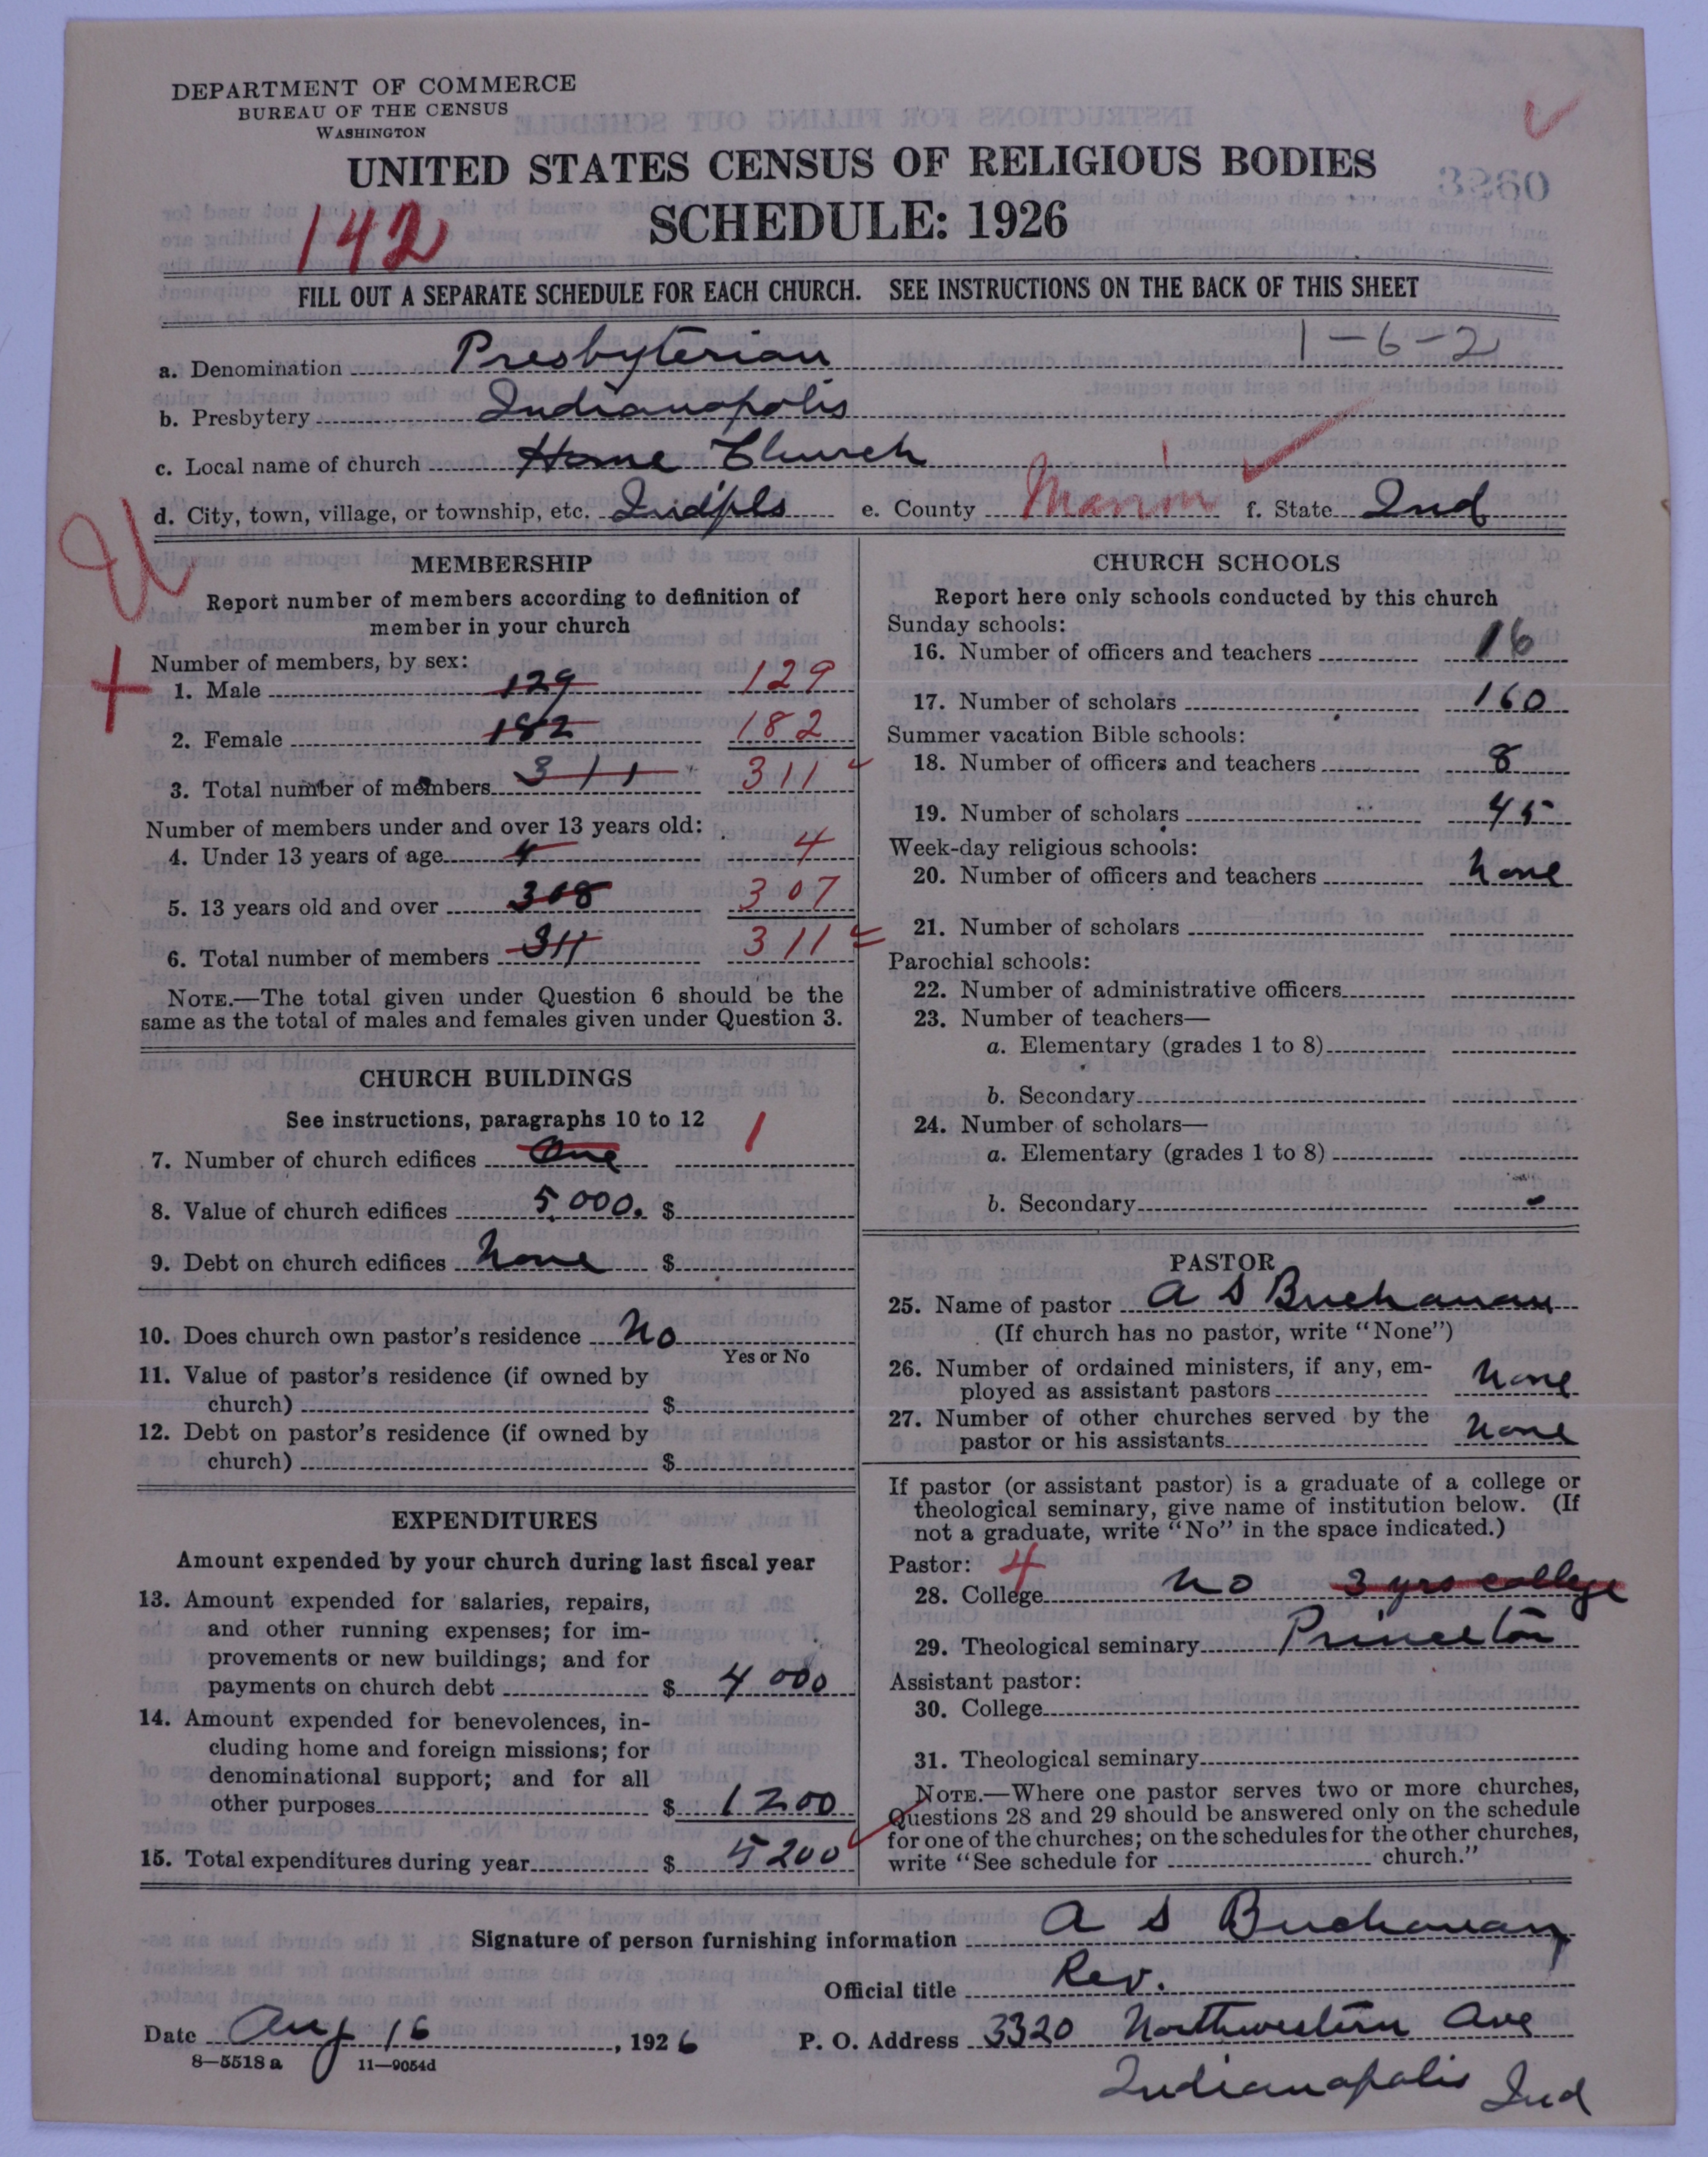 DEPARTMENT OF COMMERCE
BUREAU OF THE CENSUS
WASHINGTON
UNITED STATES CENSUS OF RELIGIOUS BODIES
3860
142
SCHEDULE: 1926
FILL OUT A SEPARATE SCHEDULE FOR EACH CHURCH. SEE INSTRUCTIONS ON THE BACK OF THIS SHEET
1-6-2
a. Denomination Presbyterian
b. Presbytery Indianapolis
c. Local name of church Home Church
d. City, town, village, or township, etc. Indpls e. County Marion f. State Ind
MEMBERSHIP
Report number of members according to definition of
member in your church
Number of members, by sex:
1. Male 129 129
2. Female 182 182
3. Total number of members 311 311
Number of members under and over 13 years old:
4. Under 13 years of age 4 4
5. 13 years old and over 308 307
6. Total number of members 311 311
NOTE.—The total given under Question 6 should be the
same as the total of males and females given under Question 3.
CHURCH BUILDINGS
See instructions, paragraphs 10 to 12
7. Number of church edifices One 1
8. Value of church edifices 5000. $
9. Debt on church edifices None $
10. Does church own pastor's residence No
Yes or No
11. Value of pastor's residence (if owned by
church) $
12. Debt on pastor's residence (if owned by
church) $
EXPENDITURES
Amount expended by your church during last fiscal year
13. Amount expended for salaries, repairs,
and other running expenses; for im-
provements or new buildings; and for
payments on church debt $ 4000
14. Amount expended for benevolences, in-
cluding home and foreign missions; for
denominational support; and for all
other purposes $ 1200
15. Total expenditures during year $ 5200
CHURCH SCHOOLS
Report here only schools conducted by this church
Sunday schools:
16. Number of officers and teachers 16
17. Number of scholars 160
Summer vacation Bible schools:
18. Number of officers and teachers 8
19. Number of scholars 45
Week-day religious schools:
20. Number of officers and teachers None
21. Number of scholars
Parochial schools:
22. Number of administrative officers
23. Number of teachers—
a. Elementary (grades 1 to 8)
b. Secondary
24. Number of scholars—
a. Elementary (grades 1 to 8)
b. Secondary
PASTOR
25. Name of pastor A S Buchanan
(If church has no pastor, write "None")
26. Number of ordained ministers, if any, em-
ployed as assistant pastors None
27. Number of other churches served by the
pastor or his assistants None
If pastor (or assistant pastor) is a graduate of a college or
theological seminary, give name of institution below. (If
not a graduate, write "No" in the space indicated.)
Pastor: 4
28. College No 3 yrs college
29. Theological seminary Princeton
Assistant pastor:
30. College
31. Theological seminary
NOTE.—Where one pastor serves two or more churches,
Questions 28 and 29 should be answered only on the schedule
for one of the churches; on the schedules for the other churches,
write "See schedule for church."
Signature of person furnishing information A S Buchanan
Official title Rev.
Date Aug 16, 1926 P. O. Address 3320 Northwestern Ave
8—5518a 11—9054d
Indianapolis Ind